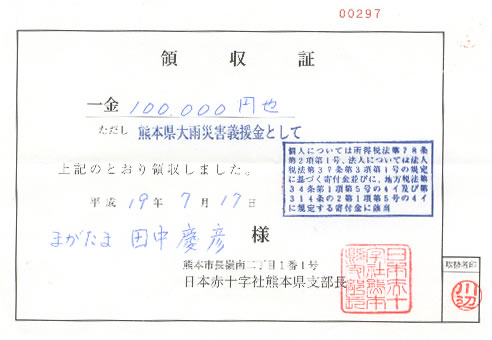 00297
領収証
一金 100,000円也
ただし 熊本県大雨災害義援金として
上記のとおり領収しました。
個人については所得税法第78条
第2項第1号、法人については法人
税法第37条第3項第1号の規定
に基づく寄付金並びに、地方税法第
34条第1項第5号の4イ及び第
314条の2第1項第5号の4イ
に規定する寄付金に該当
平成 19年 7月 17日
まがたま 田中慶彦 様
熊本市長嶺南二丁目1番1号
日本赤十字社熊本県支部長
取扱者印
川辺